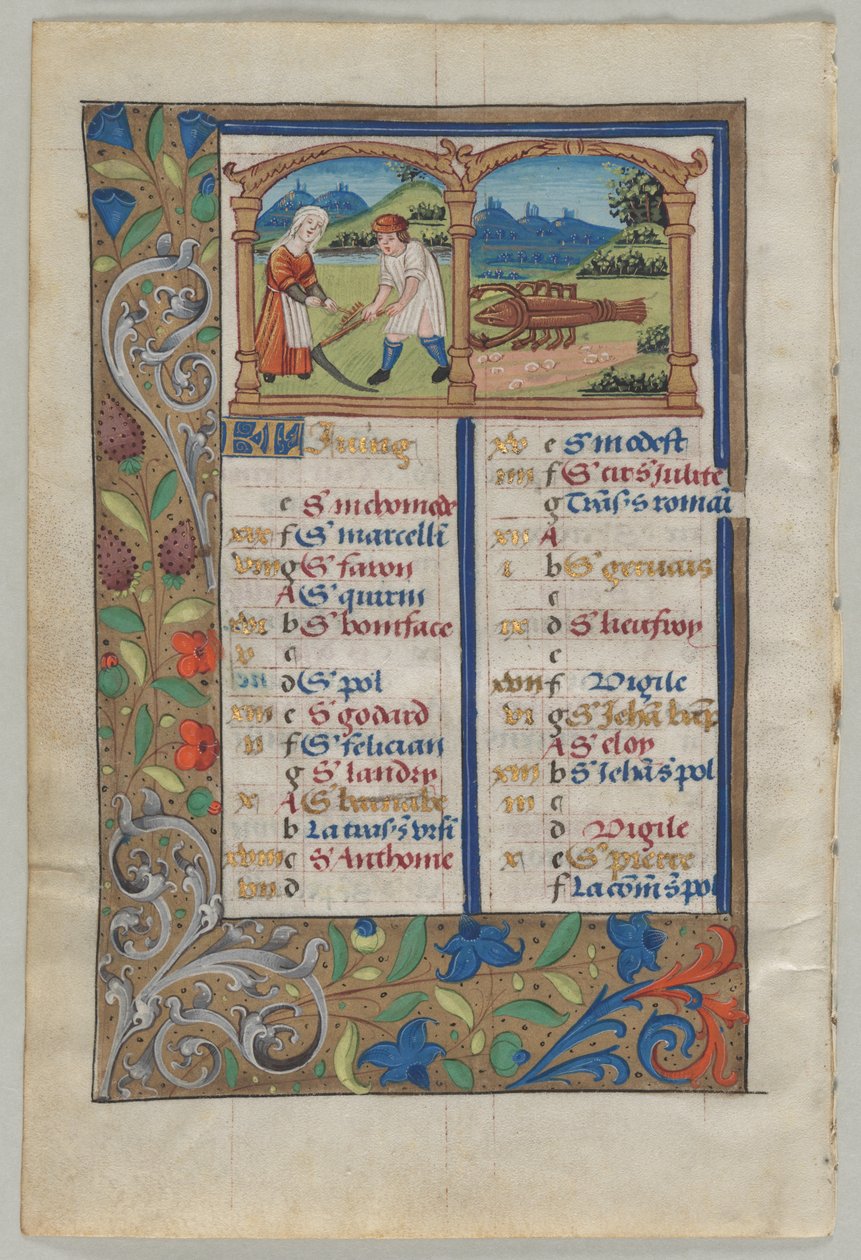 KL Juing
e S' nichomede
xix f S' marcelli
viii g S' faron
A S' quirin
xvi b S' boniface
v c
d S' pol
xiii e S' godard
ii f S' felician
g S' landry
x A S' barnabe
b La tras s vrsi
xviii c S' Anthoine
vii d
xv e S' modest
iiii f S' cir s Julite
g Tras s romai
xii A
i b S' geruais
c
ix d S' lieufroy
e
xvii f Vigile
vi g S' Jehā bap
A S' eloy
xiiii b S' Jehā s pol
iii c
d Vigile
xi e S' pierre
f La cōm s pol